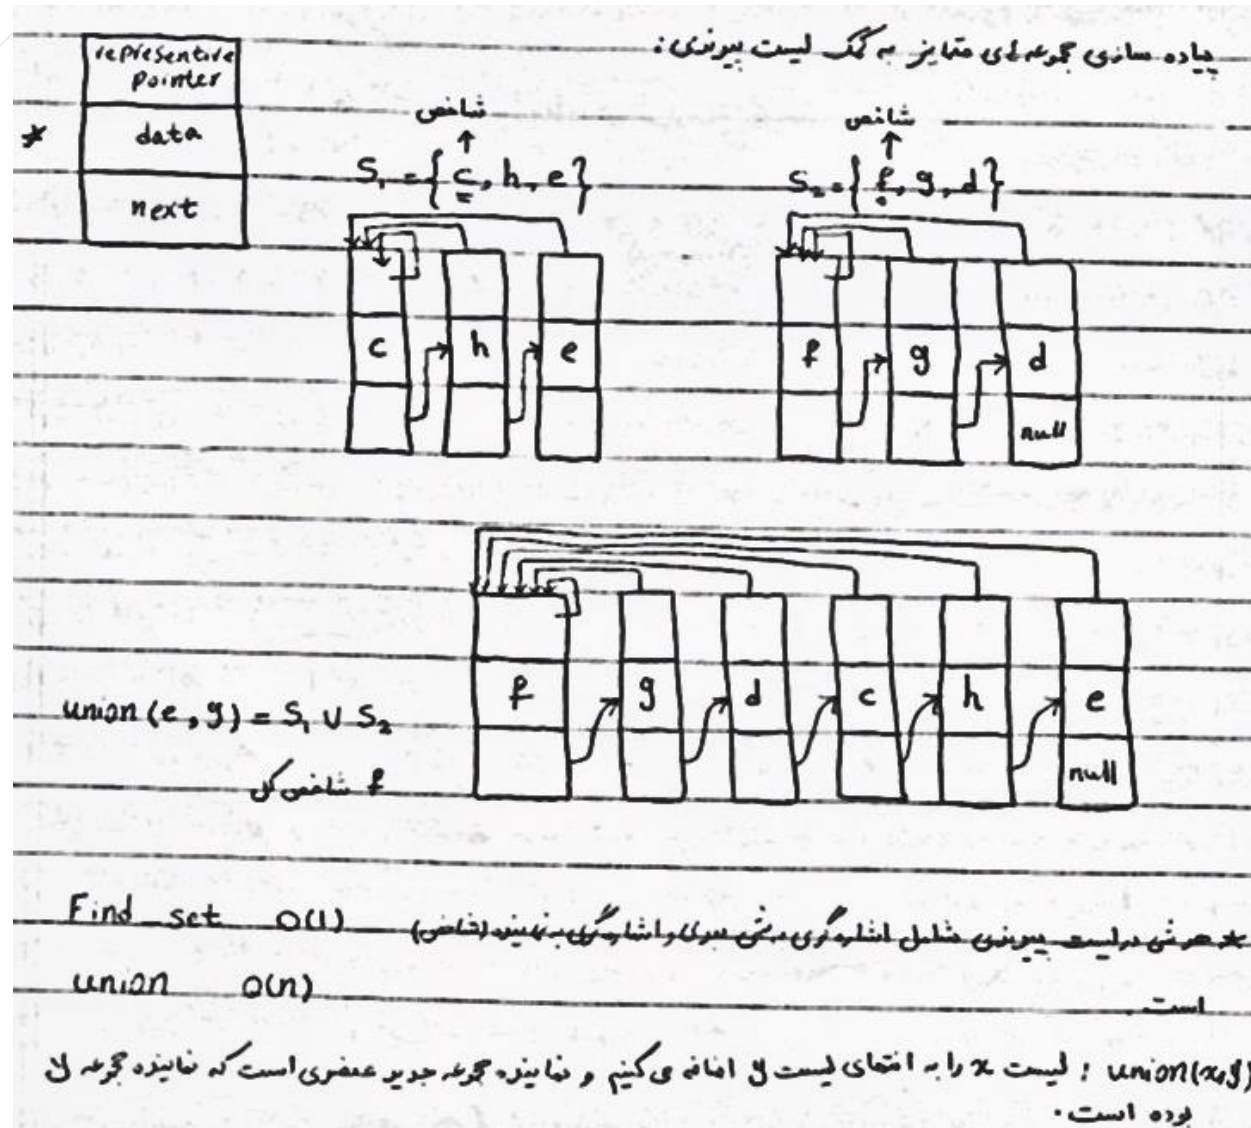 پیاده سازی مجموعه های متمایز به کمک لیست پیوندی :
representive
pointer
* data
next
شاخص
S₁ = { c, h, e }
شاخص
S₂ = { f, g, d }
c h e
f g d
null
f g d c h e
null
union (e, g) = S₁ ∪ S₂
f شاخص کل
Find set O(1)
* هر شی در لیست پیوندی شامل اشاره گری به شی بعدی و اشاره گری به نماینده (شاخص)
union O(n)
است.
union(x,y) : لیست x را به انتهای لیست y اضافه می کنیم و نماینده مجموعه جدید عنصری است که نماینده مجموعه y
بوده است.